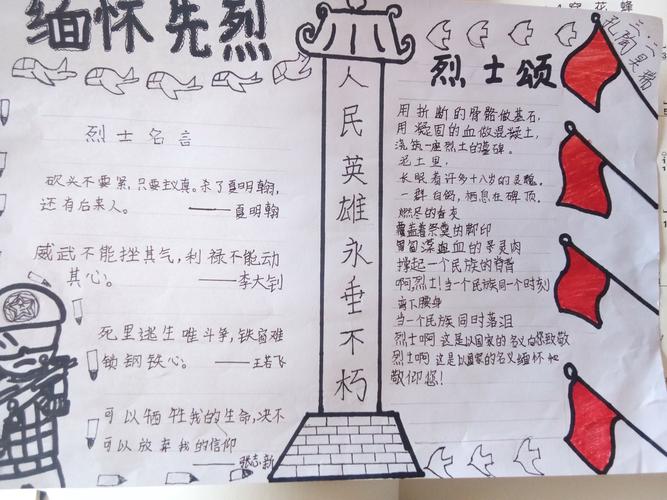 缅怀先烈
烈士名言
砍头不要紧,只要主义真。杀了夏明翰,
还有后来人。——夏明翰
威武不能挫其气,利禄不能动
其心。——李大钊
死里逃生唯斗争,铁窗难
锁钢铁心。——王若飞
可以牺牲我的生命,决不
可以放弃我的信仰
——张志新
人民英雄永垂不朽
三、二
烈士颂
用折断的骨骼做基石,
用凝固的血做混凝土,
浇筑一座烈士的墓碑。
泥土里,
长眠着许多十八岁的灵魂。
一群白鸽,栖息在碑顶。
燃尽的香灰
覆盖着祭奠的脚印
撑起一个民族的脊背
啊,烈士!当一个民族同一个时刻
弯下腰身
当一个民族同时落泪
烈士啊 这是以国家的名义向您致敬
烈士啊 这是以国家的名义缅怀
敬仰您!